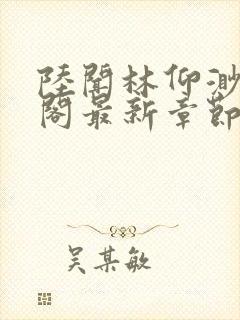 陸聞林仰渺
閣最新章節
吴某敏